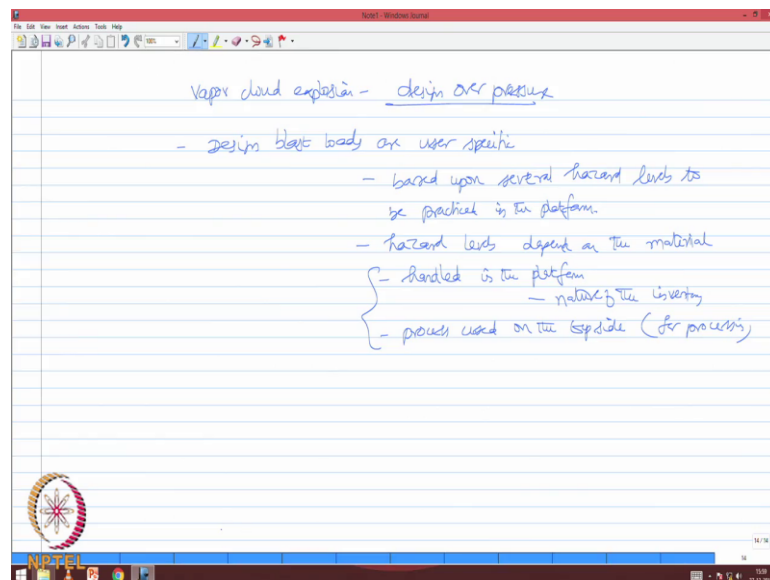 Note1 - Windows Journal
File Edit View Insert Actions Tools Help
100%
vapor cloud explosion - design over pressure
- Design blast loads are user specific
- based upon several hazard levels to
be practical in the platform.
- hazard levels depend on the material
- handled in the platform
- nature of the inventory
- process used on the topside (for processing)
NPTEL
14/14
15:59